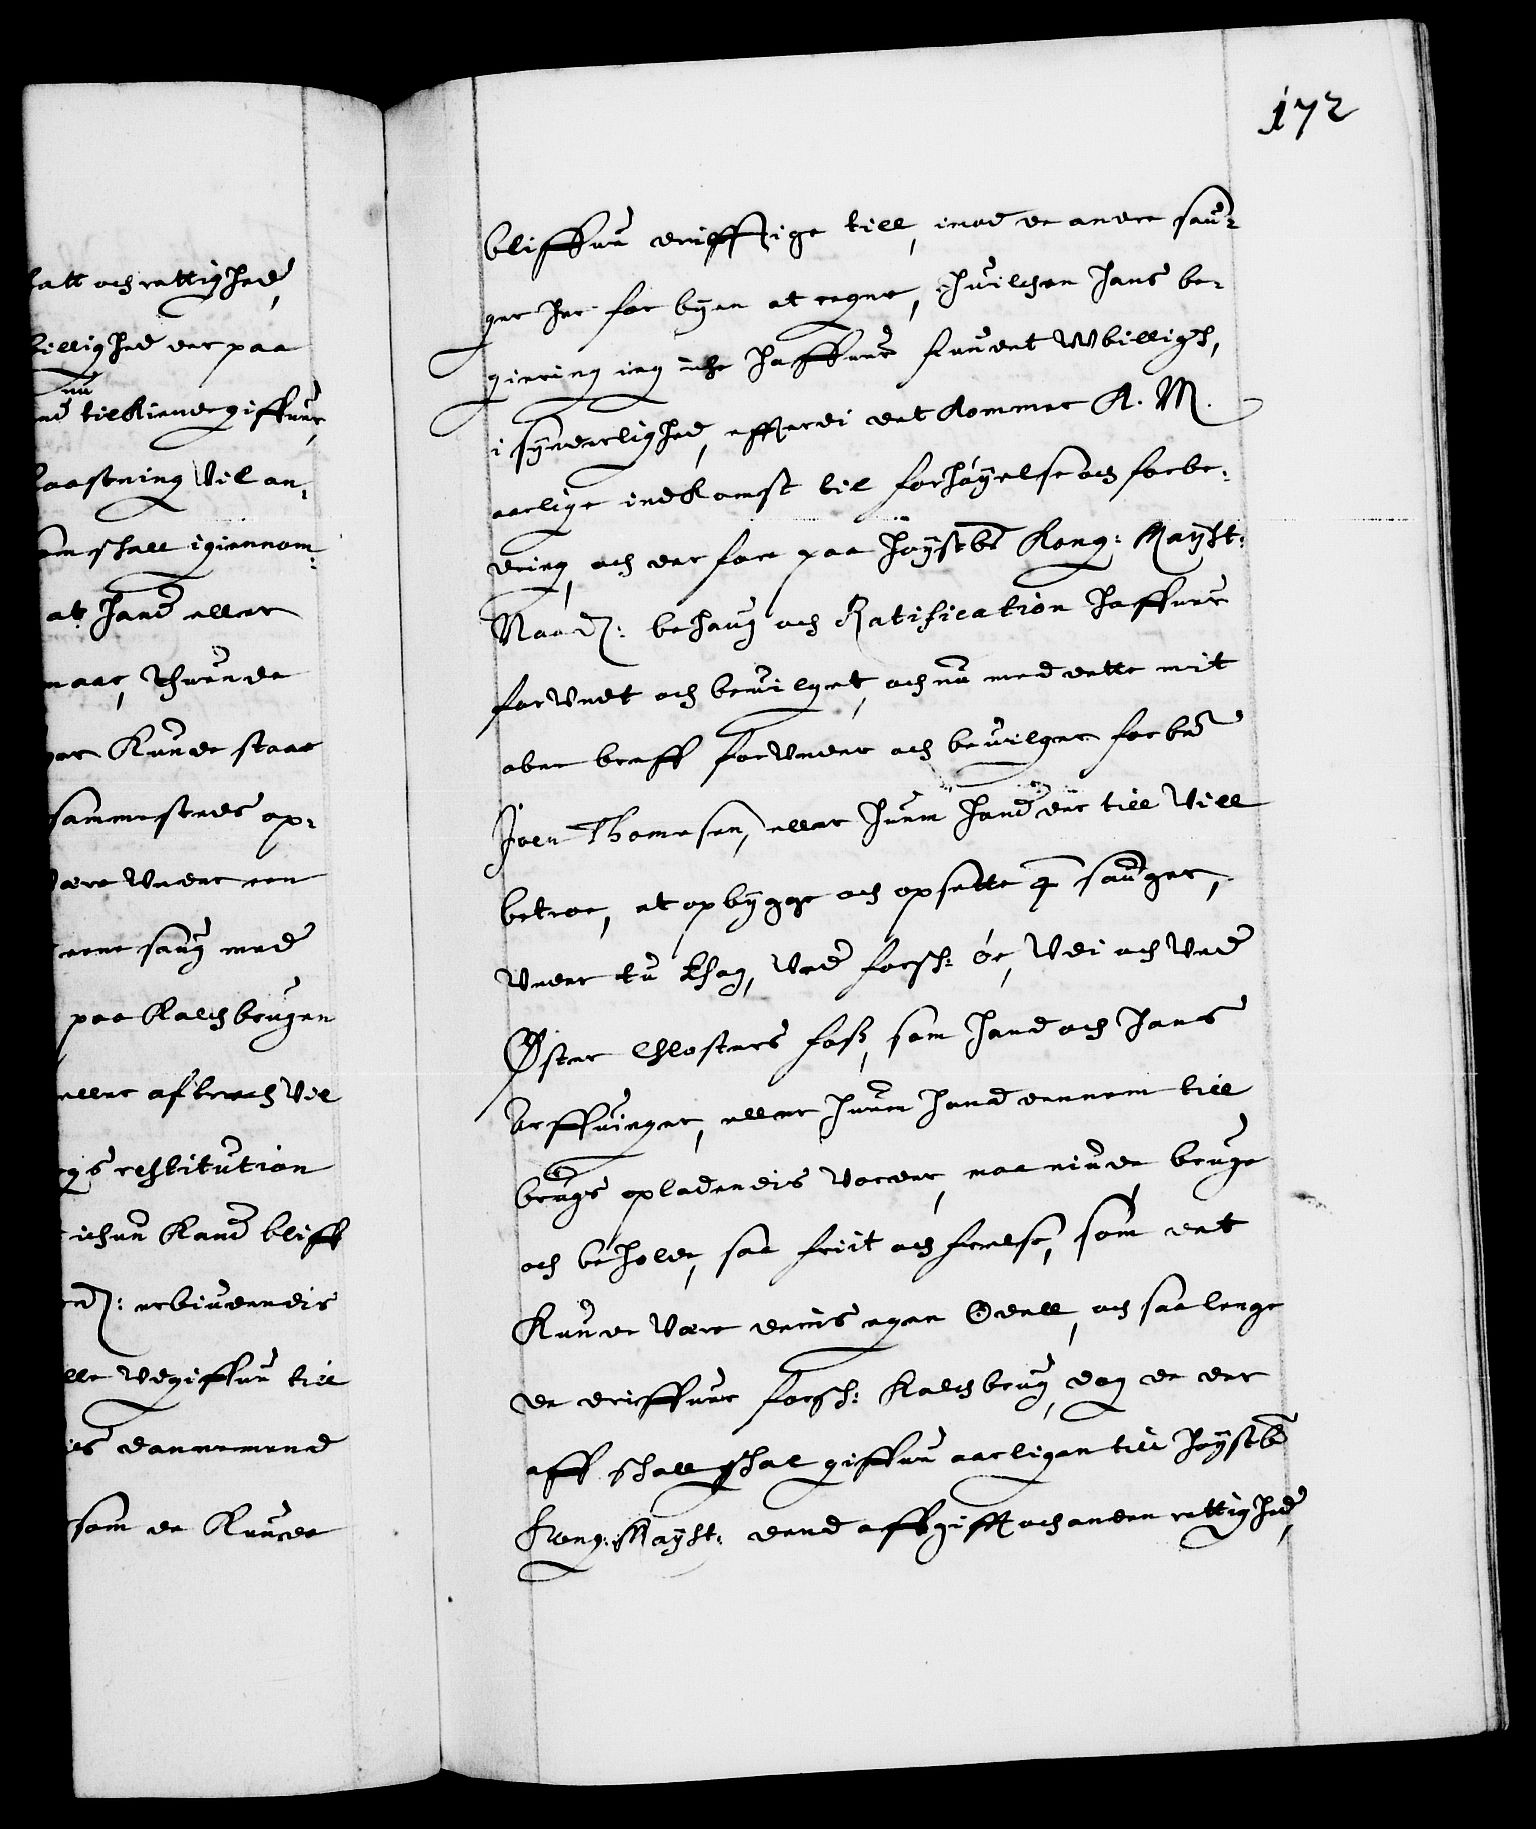 att och rettighed,
billighed der paa
nu
tilkiendegiffuer,
laastning vil an-
som schall igiennom-
at hand eller
maar, schuende
Kunde staae
sammesteds op-
vere under een
eene saug med
paa Kalchbrugen
eller aftrech vil
restitution
ichun Kand bliff
erbiudendis
wdgiffuen till
dannemend
som de Kunde
172
bliffuer drifftige till, imod de andre sau-
ger her for byen at regne, Huilchen hans be-
giering ieg iche haffuer funndet wbilligh,
i synderlighed, effterdi det kommer K. M.
aarlige indkomst til forhøyelse och forbe-
dring, och der fore paa høystbe: Kong: Mayst:
Naad: behaug och Ratification haffuer
forundt och beuilget, och nu med dette mit
aabne breff forunder och beuilger forbe:
Joen Thomesen, eller huem hand der till vill
betroe, at opbygge och opsette 4 sauger,
under tu thag, ved forsch: øe, Vdi och ved
Øster Closters foss, som hand och hans
Arffuinger, eller huem hand dennem till
brugs opladendis vorder, maa niude, bruge
och beholde, saa friit och frelse, som det
Kunde vere deris egen Odell, och saa lenge
de driffuer forsch: Kalchbrug, dog de der
aff schall schal giffue aarligen till høystbe:
Kong: Mayst: dend affgifft och anden rettighed,